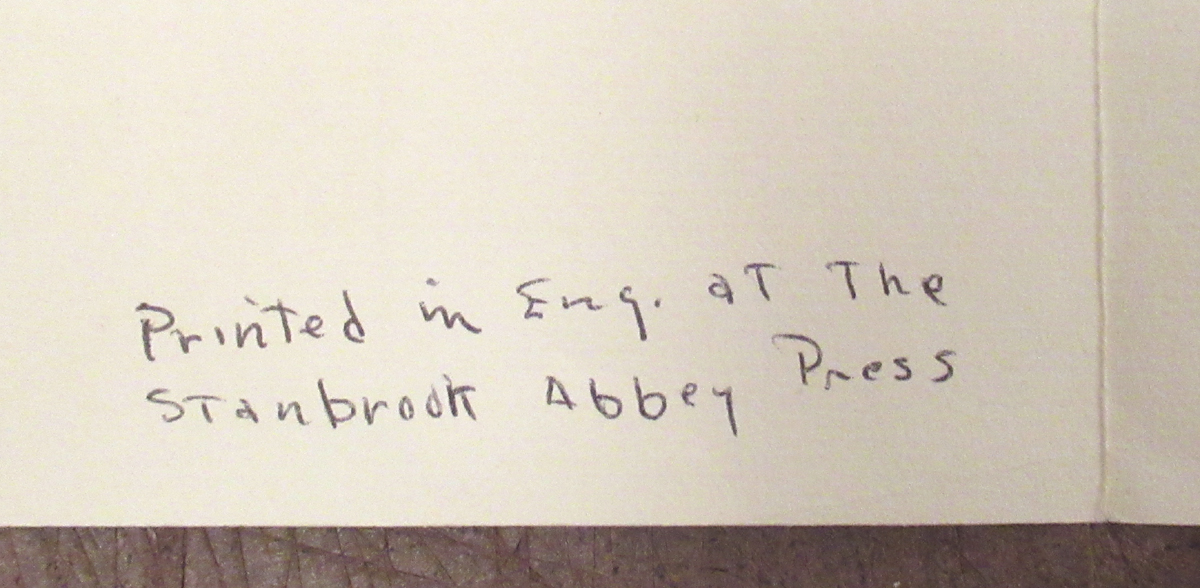 Printed in Eng. at The
Stanbrook Abbey Press